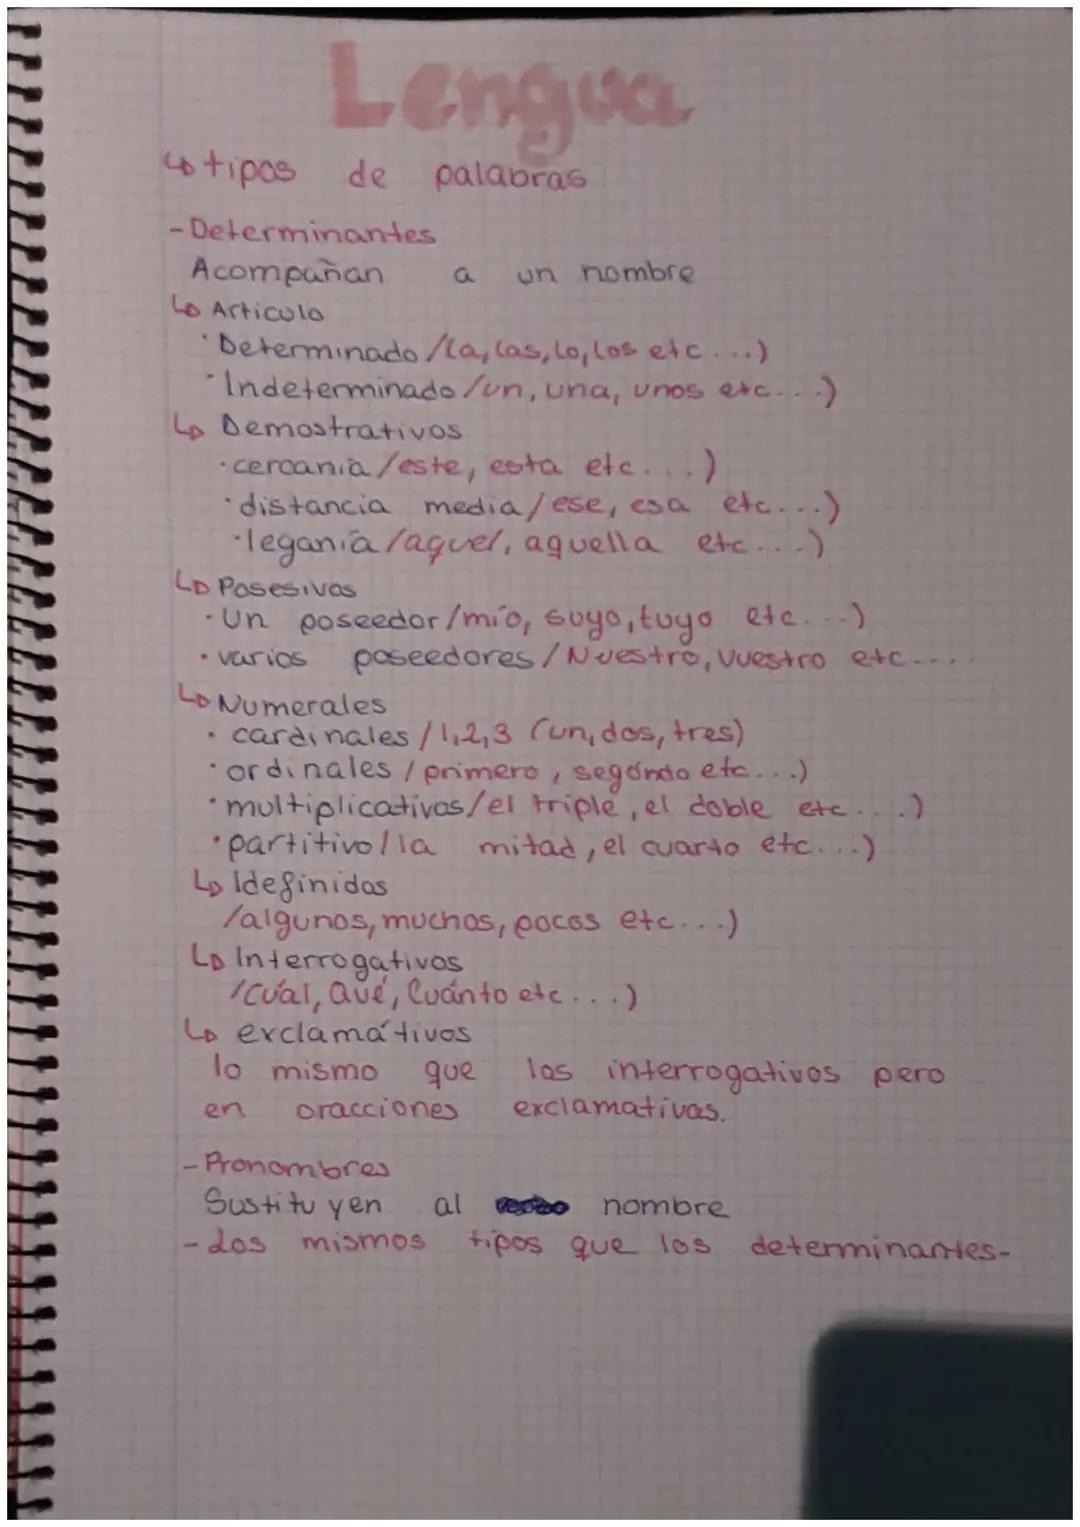 Lengua
↳ tipos de palabras
- Determinantes
Acompañan a un nombre
↳ Articulo
· Determinado /la, las, lo, los etc...)
· Indeterminado /un, una, unos etc...)
↳ Demostrativos
· cercanía /este, esta etc....)
· distancia media / ese, esa etc....)
· leganía /aquel, aquella etc....)
↳ Posesivos
· Un poseedor /mío, suyo, tuyo etc....)
· varios poseedores / Nuestro, Vuestro etc....
↳ Numerales
· cardinales / 1,2,3 (un, dos, tres)
· ordinales / primero, segóndo etc....)
· multiplicativos/el triple, el doble etc....)
· partitivo/la mitad, el cuarto etc....)
↳ Idefinidos
/algunos, muchos, pocos etc....)
↳ Interrogativos
/Cúal, Qué, Cuánto etc....)
↳ exclamátivos
lo mismo que los interrogativos pero
en oracciones exclamativas.
- Pronombres
Sustituyen al nombre
- Los mismos tipos que los determinantes-